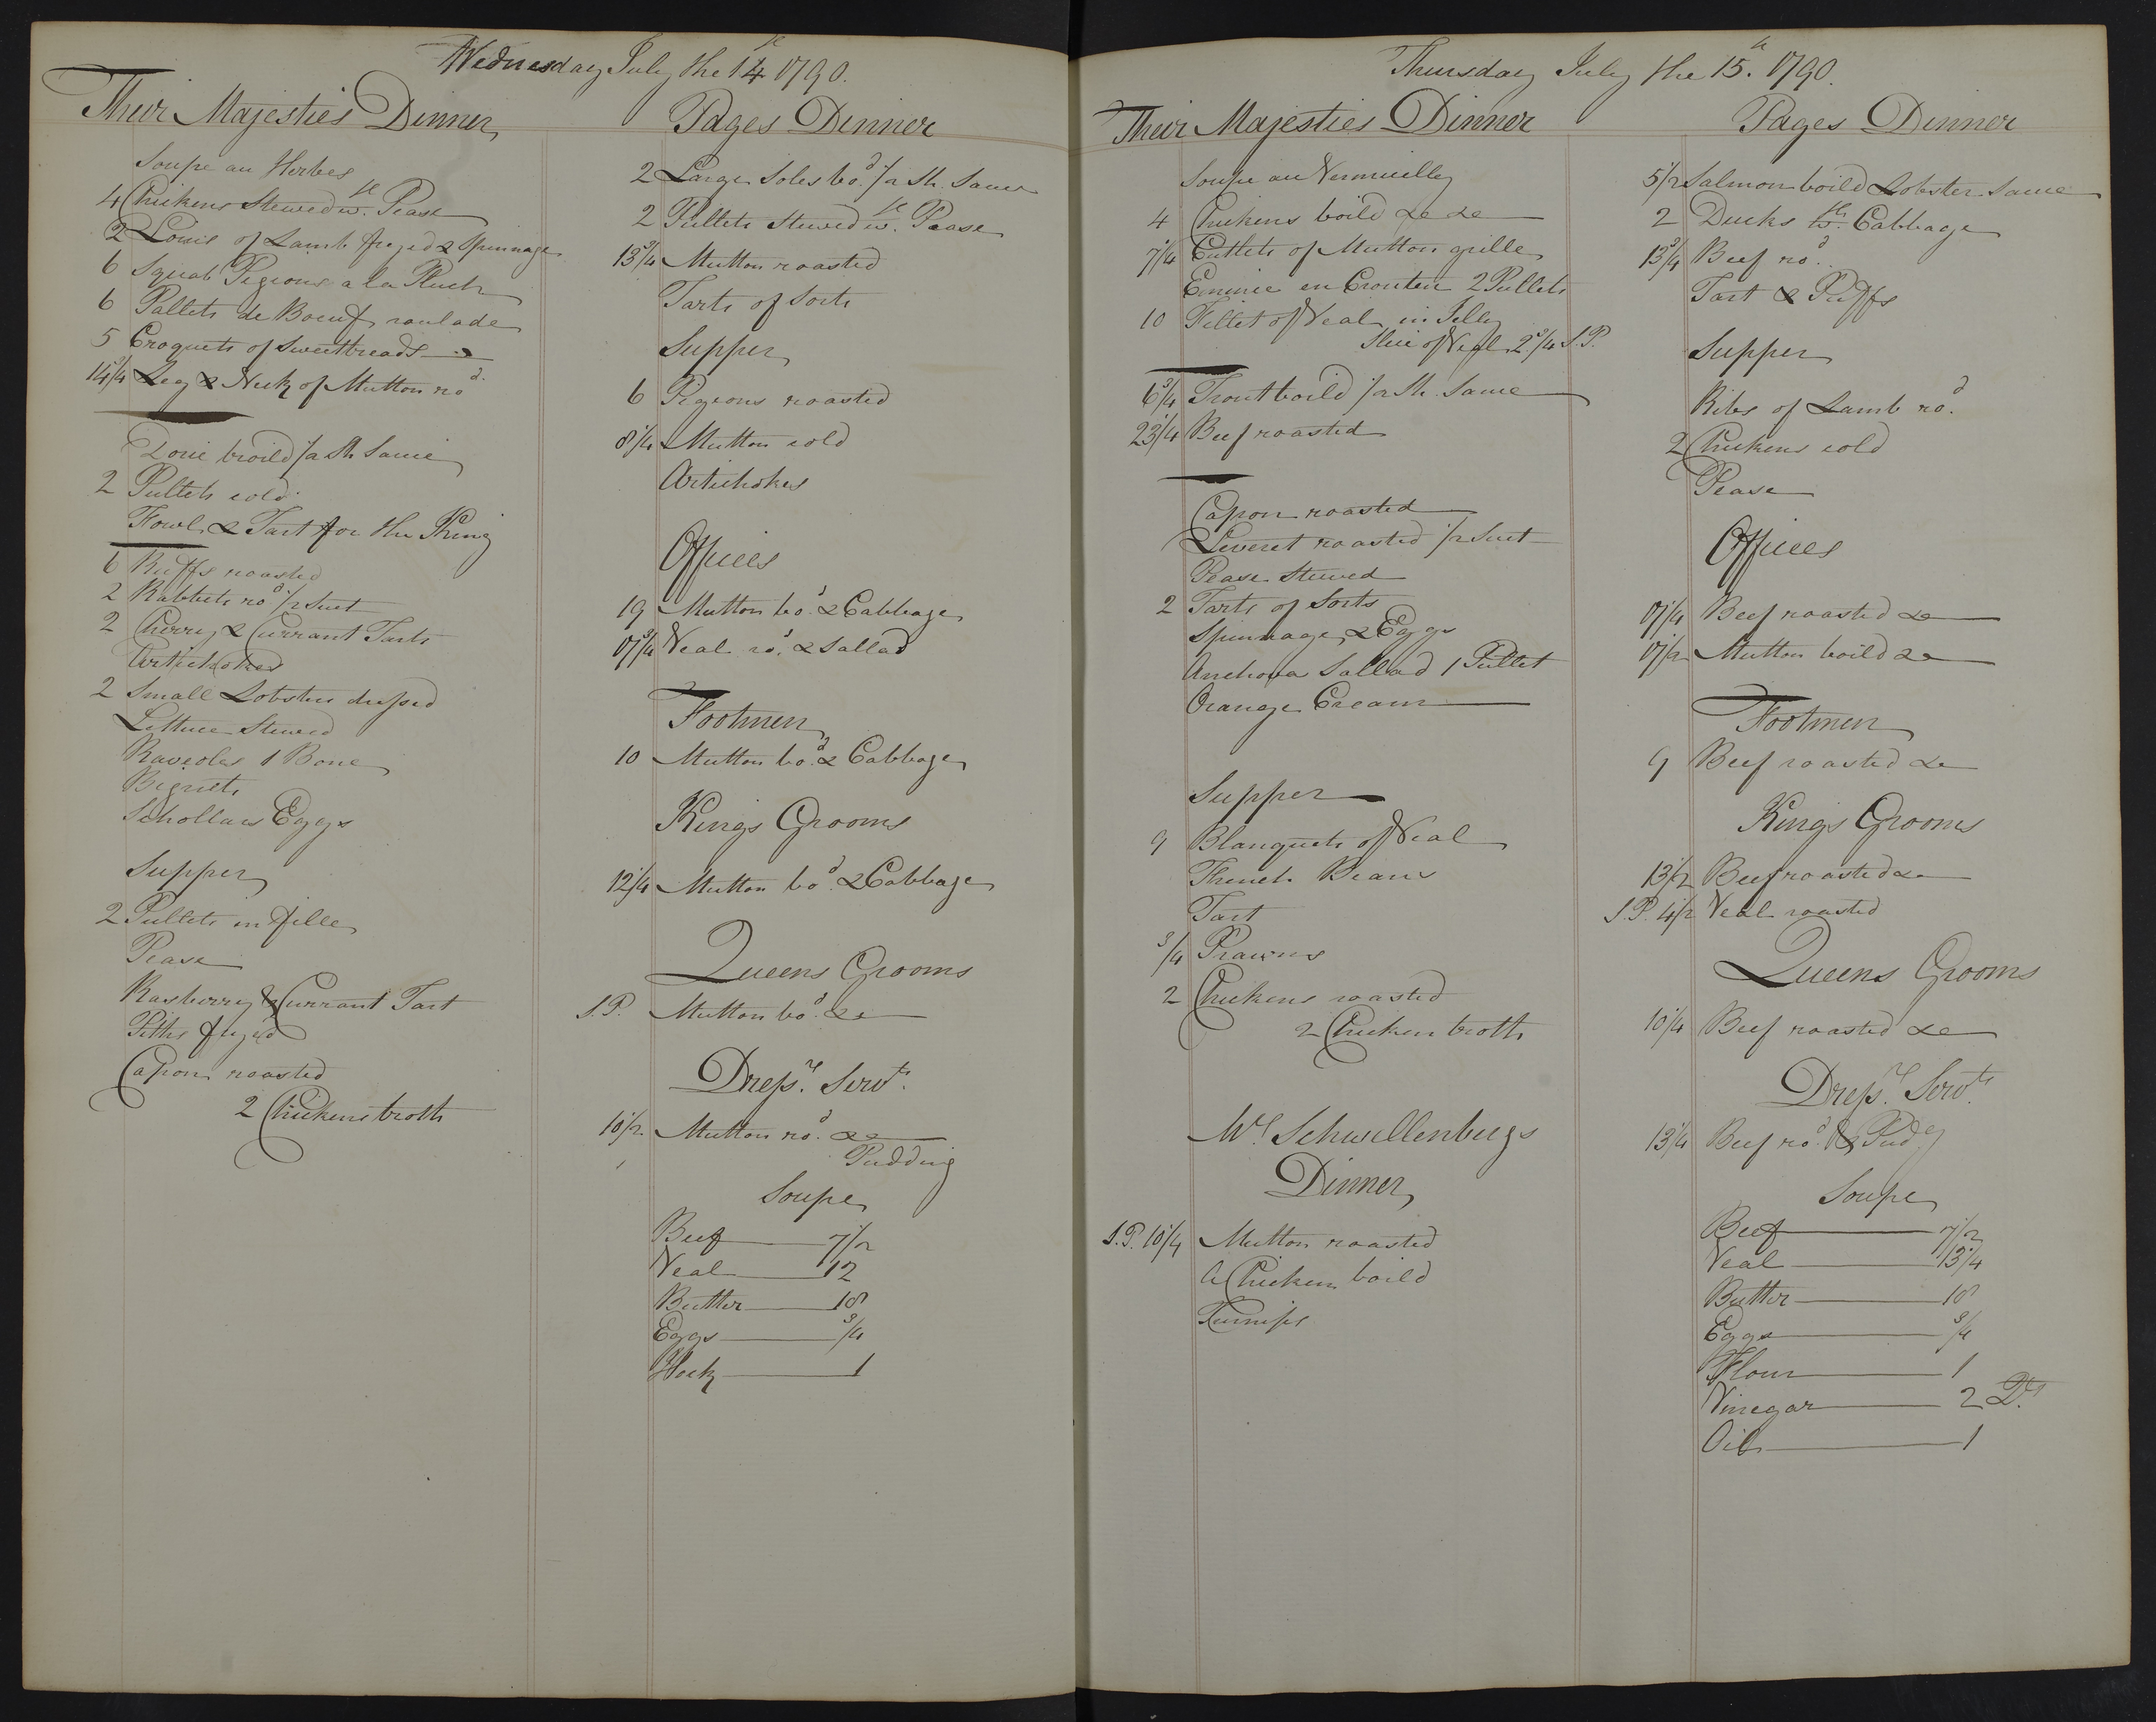 Wednesday July the 14th 1790.
Their Majesties Dinner
Soupe au Herbes
4 Chickens Stewed wth. Pease
2 Loins of Lamb fryed & Spinnage
6 Squab Pigeons a la
6 Pallets de Boeuf roulade
5 Croquets of Sweetbreads
14 3/4 Leg & Neck of Mutton rod.
broild /a Sh. Sauce
2 Pullets cold
Fowl & Tart for the King
6 Ruffs roasted
2 Rabbits rod 1/2 Suet
2 Cherry & Currant Tarts
Artichokes
2 Small Lobsters dressed
Lettuce Stewed
Raveoles 1 Bone
Bignets
Schollars Eggs
Supper
2 Pullets en fille
Pease
Rasberry & Currant Tart
Piths fryed
Capon roasted
2 Chickens broth
Pages Dinner
2 Large Soles bod. /a Sh. Sauce
2 Pullets Stewed wth. Pease
13 3/4 Mutton roasted
Tarts of Sorts
Supper
6 Pigeons roasted
8 1/4 Mutton cold
Artichokes
Offices
19 Mutton bod. & Cabbage
17 3/4 Veal rod. & Sallad
Footmen
10 Mutton bod. & Cabbage
Kings Grooms
12 1/4 Mutton bod. & Cabbage
Queens Grooms
S.P. Mutton bod. &c
Dressrs. Servts.
10 1/2 Mutton rod. &c
Pudding
Soupe
Beef 7 1/2
Veal 12
Butter 18
Eggs 3/4
Hock 1
Thursday July the 15th. 1790.
Their Majesties Dinner
Soupe au Vermicelly
4 Chickens boild &c &c
7 1/4 Cuttlets of Mutton grille
Emince en Crouten 2 Pullets
10 Fillet of Veal in Jelly
Slice of Veal 2 3/4 S.P.
6 3/4 Trout boild /a Sh. Sauce
23 1/4 Beef roasted
Capon roasted
Leveret roasted 1/2 Suet
Pease Stewed
2 Tarts of Sorts
Spinnage & Eggs
Anchova Sallad 1 Pullet
Orange Cream
Supper
9 Blanquets of Veal
French Beans
Tart
3/4 Prawns
2 Chickens roasted
2 Chicken broth
Mrs Schwellenbergs
Dinner
S.P. 10 1/4 Mutton roasted
A Chicken boild
Turnips
Pages Dinner
5 1/2 Salmon boild Lobster Sauce
2 Ducks wth. Cabbage
13 3/4 Beef rod.
Tart & Puffs
Supper
Ribs of Lamb rod.
2 Chickens cold
Pease
Offices
17 1/4 Beef roasted &c
17 1/2 Mutton boild &c
Footmen
9 Beef roasted &c
Kings Grooms
13 1/2 Beef roasted &c
S.P. 4 1/2 Veal roasted
Queens Grooms
10 1/4 Beef roasted &c
Dressrs. Servts.
13 1/4 Beef rod. & Pudg
Soupe
Beef 7 1/2
Veal 13 1/4
Butter 18
Eggs 3/4
Flour 1
Vinegar 2
Oil 1